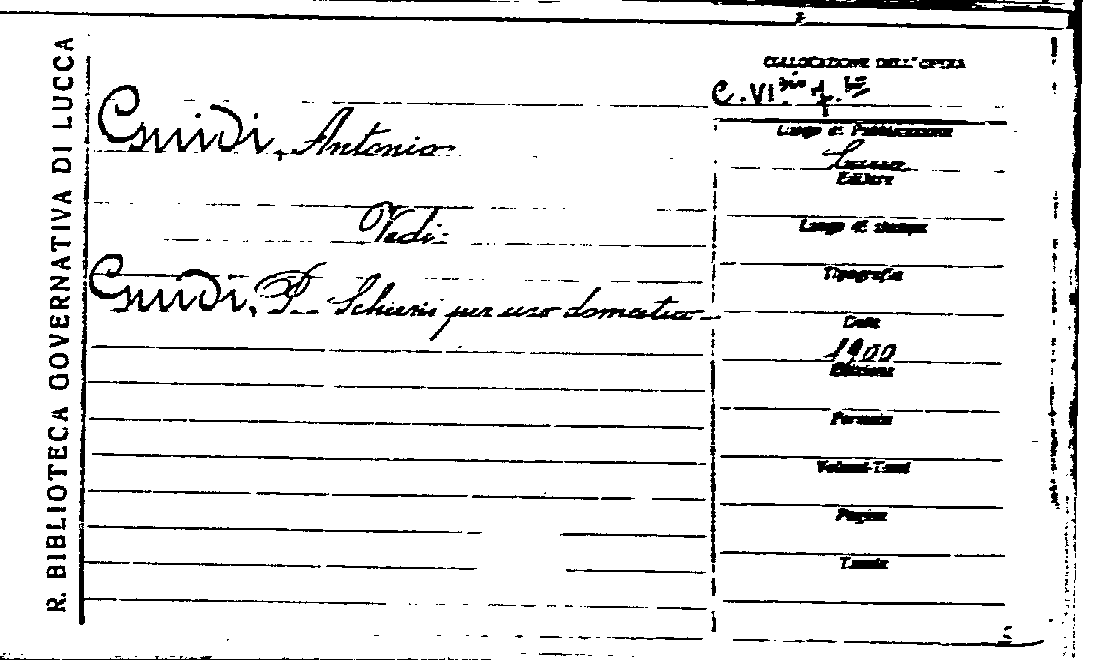 R. BIBLIOTECA GOVERNATIVA DI LUCCA
Guidi, Antonio
Vedi:
Guidi, P. Scherzi per uso domestico
COLLOCAZIONE DELL'OPERA
C.VI.
Luogo di Pubblicazione
Lucca
Editore
Luogo di stampa
Tipografia
Data
1900
Edizione
Formato
Volumi-Tomi
Pagine
Tavole